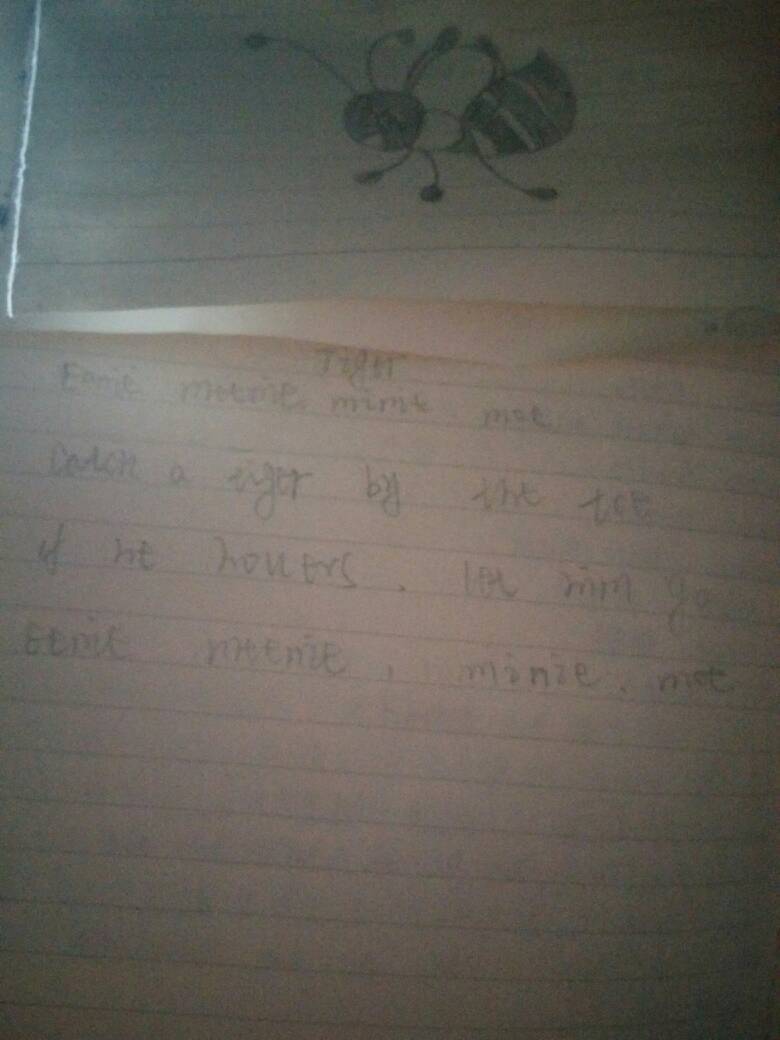 Tiger
Eenie meenie minie moe
Catch a tiger by the toe
if he hollers. let him go
Eenie meenie, minie. moe